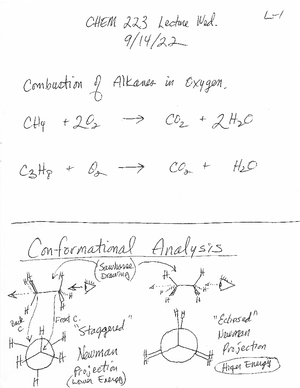 CHEM 223 Lecture Wed. L-1
9/14/22
Combustion of Alkanes in Oxygen.
CH4 + 2O2 → CO2 + 2H2O
C3H8 + O2 → CO2 + H2O
Conformational Analysis
Sawhorse
Drawing
H H H H
Back C. Front C.
"Staggered"
Newman
Projection
(Lower Energy)
"Eclipsed"
Newman
Projection
Higher Energy